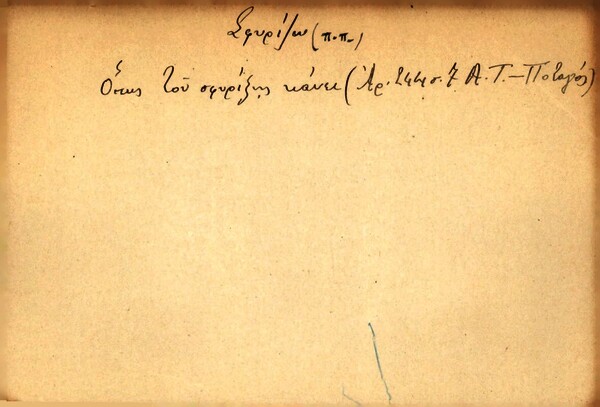 Σφυρίζω (π.π.)
Ὅπως τοῦ σφυρίξῃς κάνει (Ἀρ. 244 σ. 7 Α. Τ. – Ποταμός)